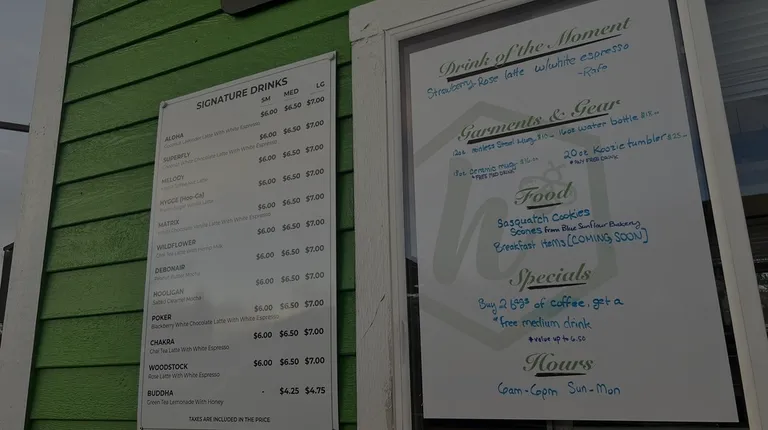 SIGNATURE DRINKS
SM MED LG
$6.00 $6.50 $7.00
ALOHA
Latte With White Espresso
$6.00 $6.50 $7.00
SUPERFLY
Chocolate Latte With White Espresso
$6.00 $6.50 $7.00
MELODY
$6.00 $6.50 $7.00
HYGGE (Hoo-Ga)
Latte
$6.00 $6.50 $7.00
MATRIX
Latte With White Espresso
$6.00 $6.50 $7.00
WILDFLOWER
$6.00 $6.50 $7.00
DEBONAIR
Mocha
$6.00 $6.50 $7.00
HOOLIGAN
Salted Caramel Mocha
$6.00 $6.50 $7.00
POKER
Blackberry White Chocolate Latte With White Espresso
$6.00 $6.50 $7.00
CHAKRA
Chai Tea Latte With White Espresso
$6.00 $6.50 $7.00
WOODSTOCK
Rose Latte With White Espresso
BUDDHA - $4.25 $4.75
Green Tea Lemonade With Honey
TAXES ARE INCLUDED IN THE PRICE
Drink of the Moment
Strawberry Rose latte w/white espresso
-Rafe
Garments & Gear
12oz Stainless Steel Mug 16oz water bottle
ceramic mug 20oz Koozie tumbler
*FREE MED DRINK *W/ FREE DRINK
Food
Sasquatch Cookies
Scones from Blue Sunflour Bakery
Breakfast Items [COMING SOON]
Specials
Buy 2 bags of coffee, get a
*free medium drink
*value up to 6.50
Hours
6am-6pm Sun-Mon